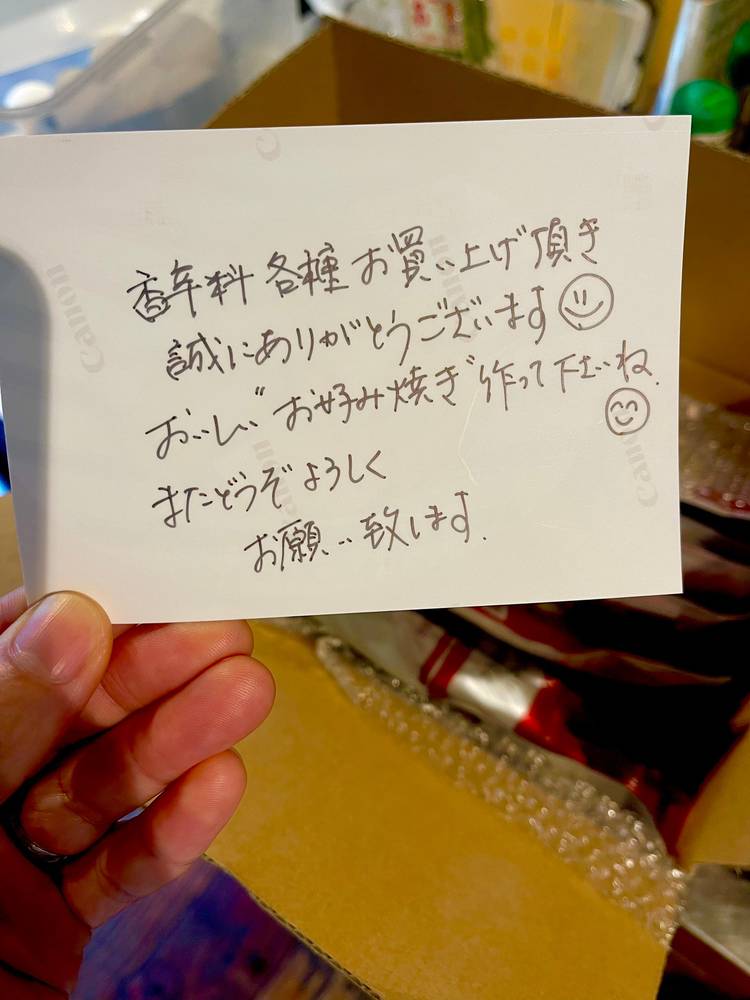 香辛料 各種 お買い上げ頂き
誠にありがとうございます
おいしい お好み焼き 作って下さいね.
またどうぞよろしく
お願い致します.
Canon
Canon
Canon
Canon